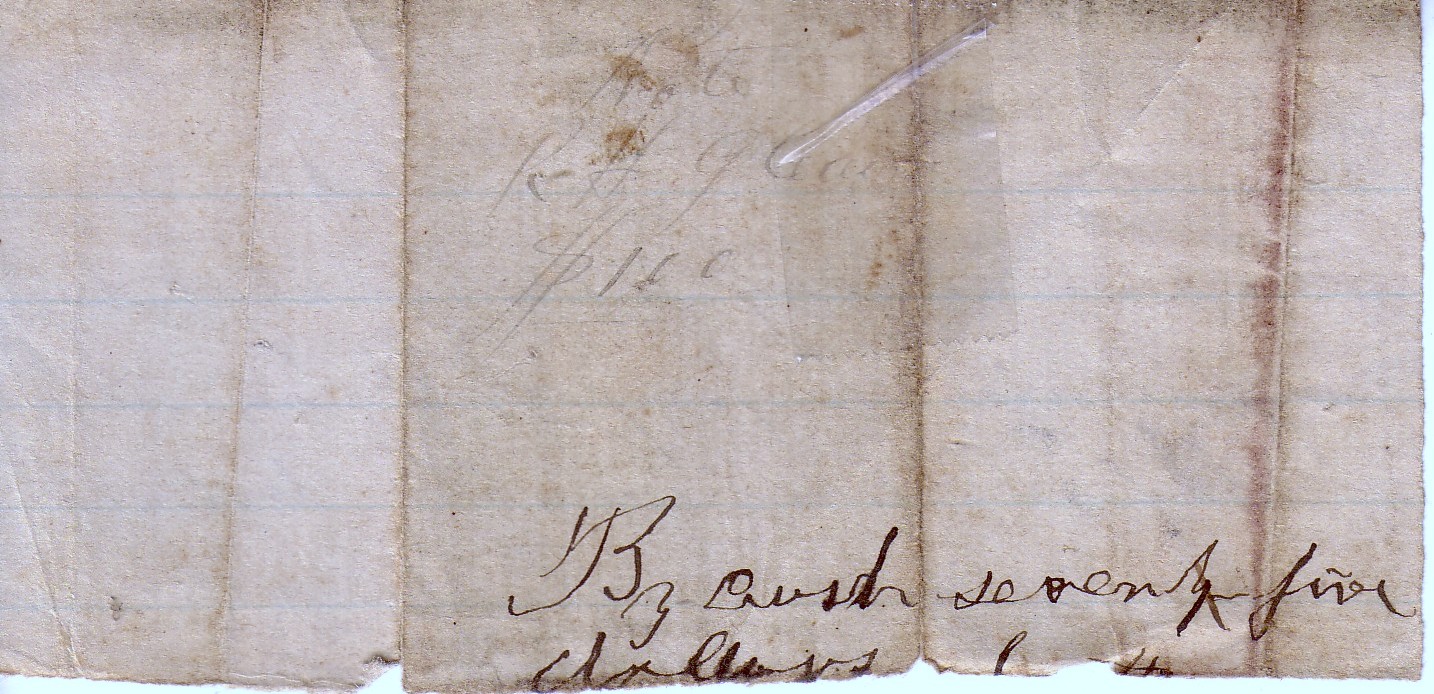 Note
R H
$100
By cash seventy five
dollars